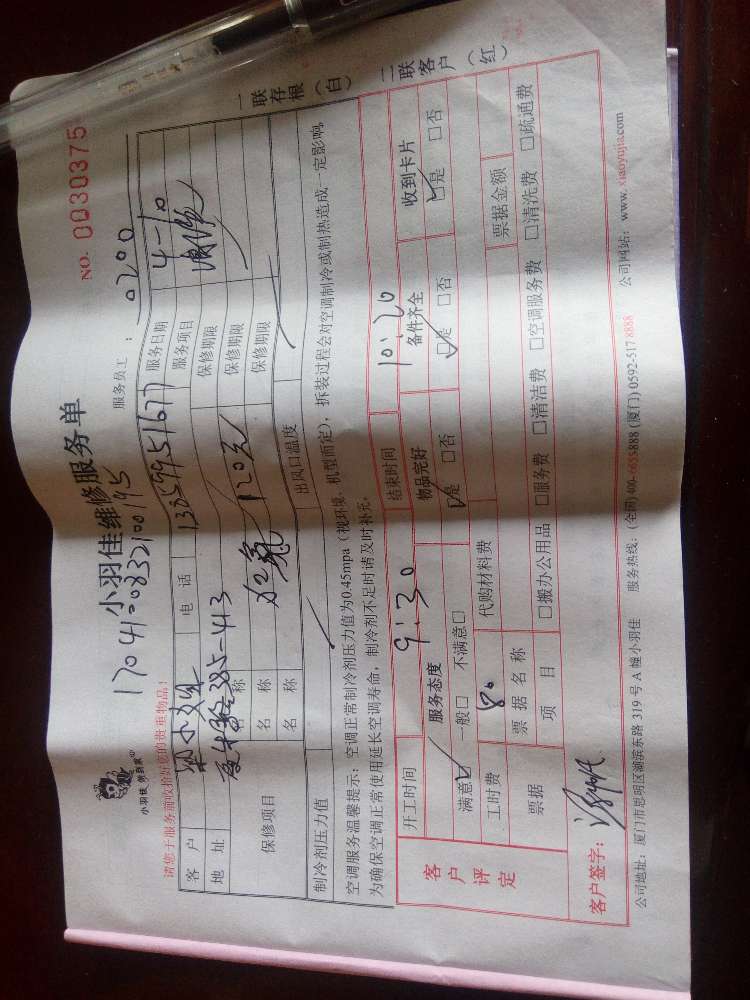 小羽佳 家到家
小羽佳维修服务单
NO. 0030375
170410832100195
请您于服务前收拾好您的贵重物品！
服务员工： 0200
客户 电话 13599951677 服务日期 4-10
地址 385-413 服务项目
保修项目 名称 加氟 120元 保修期限
名称 保修期限
名称 保修期限
制冷剂压力值 出风口温度
空调服务温馨提示：空调正常制冷剂压力值为0.45mpa（视环境、机型而定），拆装过程会对空调制冷或制热造成一定影响，
为确保空调正常使用延长空调寿命，制冷剂不足时请及时补充。
一联存根（白）
二联客户（红）
客户评定
开工时间 9:30 结束时间 10:20
服务态度 物品完好 备件齐全 收到卡片
满意☑ 一般□ 不满意□ ☑是 □否 ☑是 □否 ☑是 □否
工时费 80 代购材料费
票据 票据名称 票据金额
项目 □搬办公用品 □服务费 □清洁费 □空调服务费 □清洗费 □疏通费
客户签字：
公司地址：厦门市思明区湖滨东路319号A幢小羽佳 服务热线：(全国)400-6655-888 (厦门) 0592-517 8888 公司网站：www.xiaoyujia.com